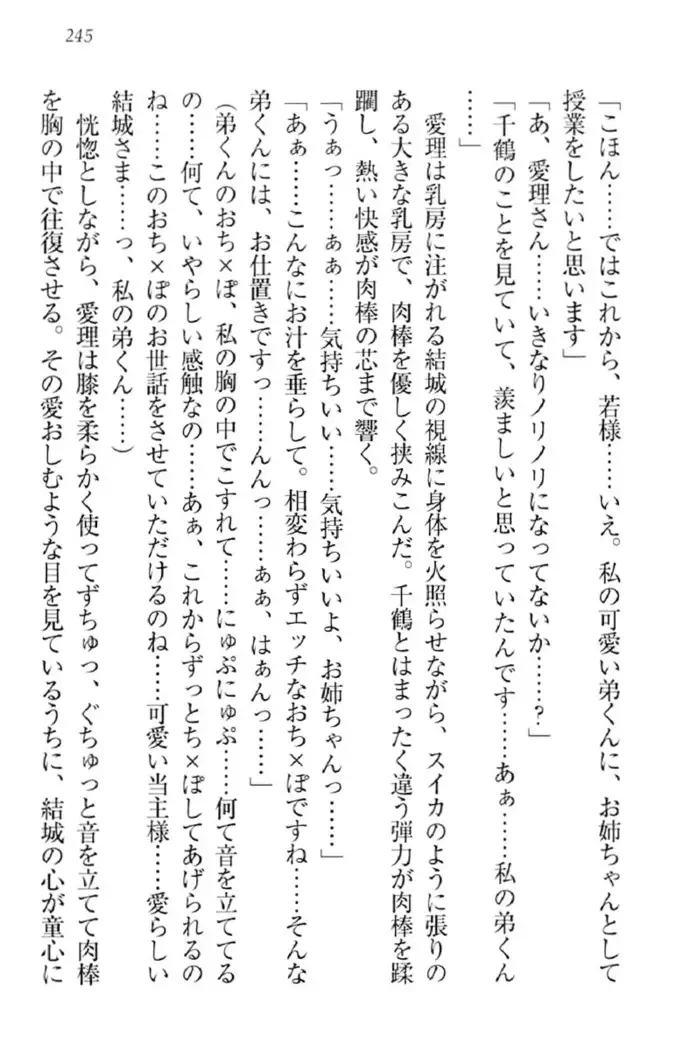 245
「こほん……ではこれから、若様……いえ。私の可愛い弟くんに、お姉ちゃんとして
授業をしたいと思います」
「あ、愛理さん……いきなりノリノリになってないか……？」
「千鶴のことを見ていて、羨ましいと思っていたんです……あぁ……私の弟くん
……」
　愛理は乳房に注がれる結城の視線に身体を火照らせながら、スイカのように張りの
ある大きな乳房で、肉棒を優しく挟みこんだ。千鶴とはまったく違う弾力が肉棒を蹂
躙し、熱い快感が肉棒の芯まで響く。
「うぁっ……ぁぁ……気持ちいい……気持ちいいよ、お姉ちゃんっ……」
「あぁ……こんなにお汁を垂らして。相変わらずエッチなおち×ぽですね……そんな
弟くんには、お仕置きですっ……んんっ……ぁぁ、はぁんっ……」
（弟くんのおち×ぽ、私の胸の中でこすれて……にゅぷにゅぷ……何て音を立ててる
の……何て、いやらしい感触なの……あぁ、これからずっとち×ぽしてあげられるの
ね……このおち×ぽのお世話をさせていただけるのね……可愛い当主様……愛らしい
結城さま……っ、私の弟くん……）
　恍惚としながら、愛理は膝を柔らかく使ってずちゅっ、ぐちゅっと音を立てて肉棒
を胸の中で往復させる。その愛おしむような目を見ているうちに、結城の心が童心に